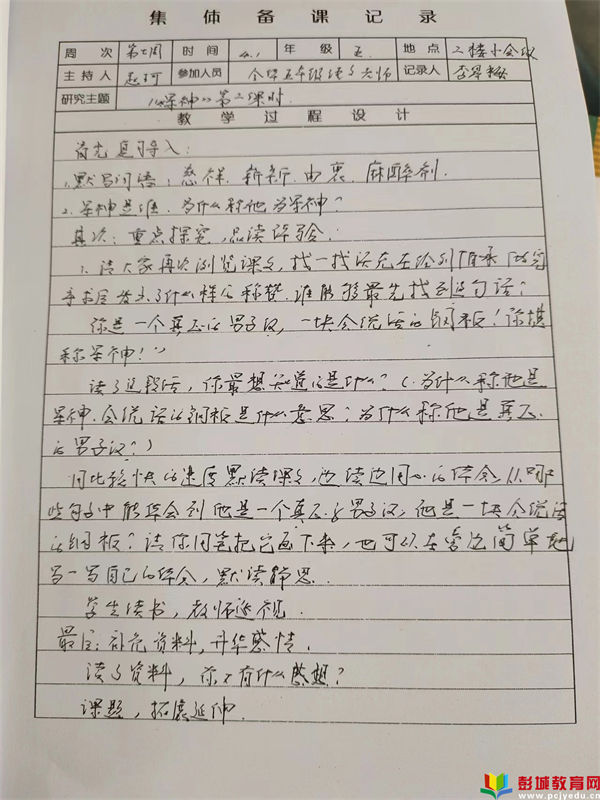 集体备课记录
周次 第七周 时间 4.1 年级 五 地点 二楼小会议
主持人 赵珂 参加人员 全体五年级语文老师 记录人 李翠梅
研究主题 《军神》第二课时
教学过程设计
首先复习导入:
1.默写词语:慈祥、衰、麻醉剂.
2.军神是谁,为什么称他为军神?
其次:重点探究,品读体验:
1.请大家再次浏览课文,找一找沃克在给刘伯承做完
手术后发出了什么样的称赞.谁能够最先找到这句话?
你是一个真正的男子汉,一块会说话的钢板!你堪
称军神!")
读了这段话,你最想知道的是什么?(为什么称他是
军神.会说话的钢板是什么意思?为什么称他是真正
的男子汉?)
用比较快的速度默读课文,边读边用心的体会,从哪
些句子中能体会到他是一个真正的男子汉,他是一块会说话
的钢板?请你用笔把它画下来,也可以在旁边简单地
写一写自己的体会,默读静思.
学生读书,教师巡视.
最后:补充资料,升华感情.
读了资料,你又有什么感想?
课题,拓展延伸.
彭城教育网
www.pcjyedu.cn